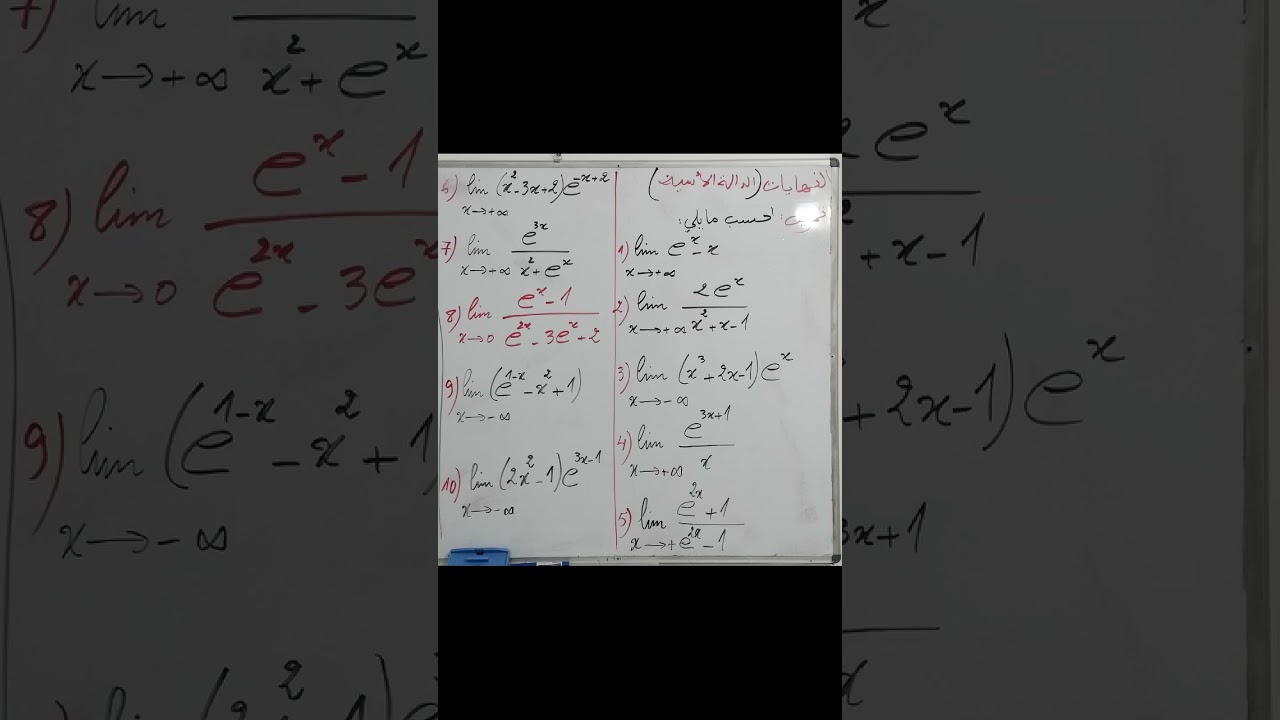 النهايات (الدالة الأسية)
تمرين: احسب ما يلي:
1) lim e^x - x
x → +∞
2) lim 2e^x / (x^2 + x - 1)
x → +∞
3) lim (x^3 + 2x - 1) e^x
x → -∞
4) lim e^(3x+1) / x
x → +∞
5) lim (e^(2x) + 1) / (e^(2x) - 1)
x → +
6) lim (x^2 - 3x + 2) e^(-x+2)
x → +∞
7) lim e^(3x) / (x^2 + e^x)
x → +∞
8) lim (e^x - 1) / (e^(2x) - 3e^x + 2)
x → 0
9) lim (e^(1-x) - x^2 + 1)
x → -∞
10) lim (2x^2 - 1) e^(3x-1)
x → -∞